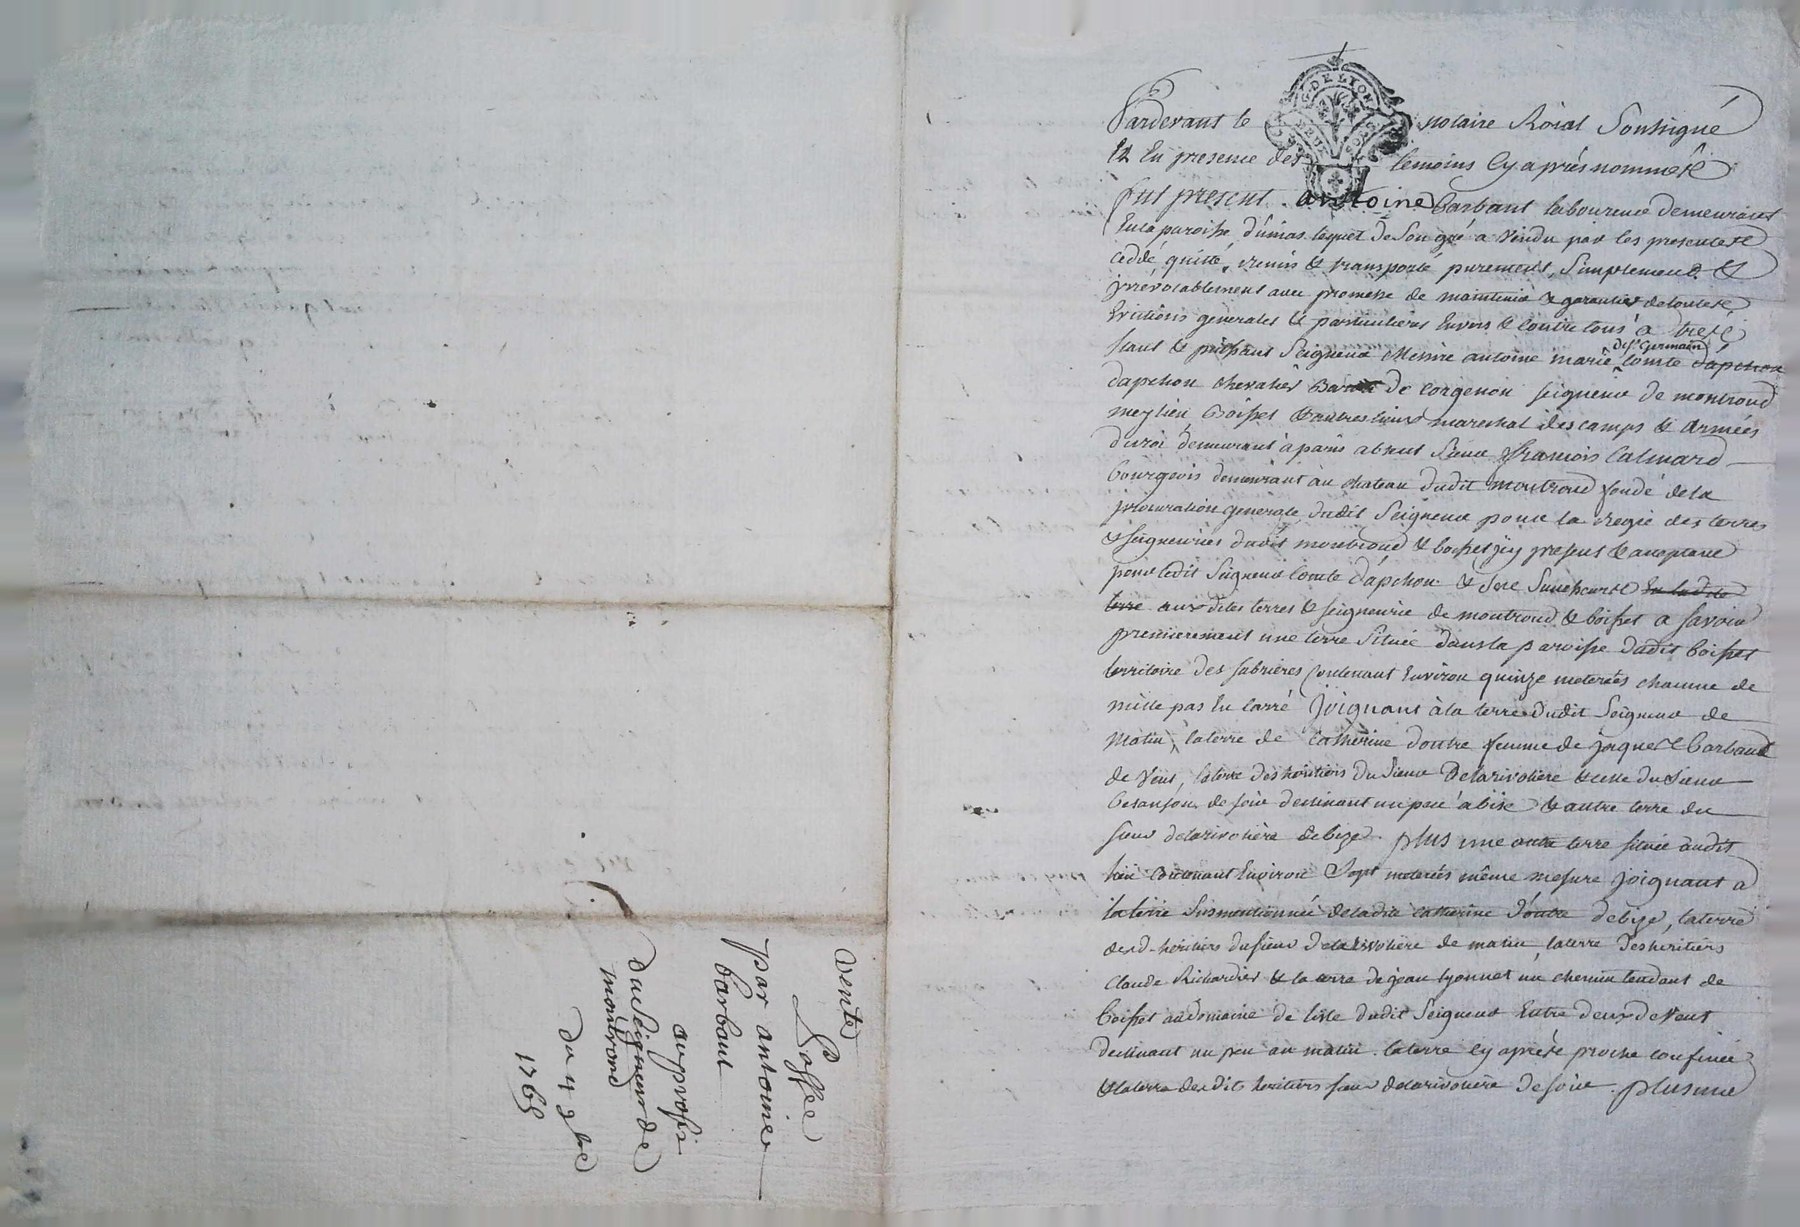 Pardevant le notaire Roial Soussigné
Et En presence des temoins Cy après nommés
fut present antoine Barbant laboureur demeurant
En la paroisse d'unias lequel de Son gré a vendu par les presentes
ceddé quitté, remis & transporté purement, Simplement &
jrrévocablement avec promesse de maintenir & garantir de toutes
Evictions generales & particulieres Envers & contre tous à tres
haut & puissant Seigneur Messire antoine marie comte d'apchon
de St Germain
dapchon chevalier Baron de Corgenon seigneur de montrond
meylieu Boisset & autres lieux marechal des camps & Armées
du roi demeurant à paris absent Sieur François Calmard
bourgeois demeurant au chateau dudit montrond fondé de la
procuration generale dudit Seigneur pour la regie des terres
& seigneuries dudit montrond & boisset jcy present & acceptant
pour ledit Seigneur Comte d'apchon & Ses Successeurs en ladite
terre auxdites terres & seigneurie de montrond & boisset a savoir
premierement une terre Située dans la paroisse dudit boisset
territoire des sabrières contenant Environ quinze meterées chacune de
mille pas En carré Joignant à la terre dudit Seigneur de
Matin, la terre de catherine doutre femme de jaques Barbant
de Vent, la terre des heritiers du Sieur Delarivoliere & celle du Sieur
besançon de soir declinant un peu à bise & autre terre du
sieur delarivolière de bize. plus une autre terre située audit
lieu contenant Environ Sept meterées même mesure joignant à
la terre Susmentionnée de ladite catherine d'outre de bize, la terre
desd. heritiers du sieur Delarivoliere de matin, la terre des heritiers
Claude Richardier & la terre de jean lyonnet un chemin tendant de
boisset au domaine de lisle dudit Seigneur Entre deux de Vent
declinant un peu au matin la terre cy après proche confinée
& la terre desdits heritiers sieur delarivoliere de soir. plus une
vente
passée
par antoine
barbant
au profit
du Seigneur de
montrond
du 4 9bre
1765
G. DE LYON